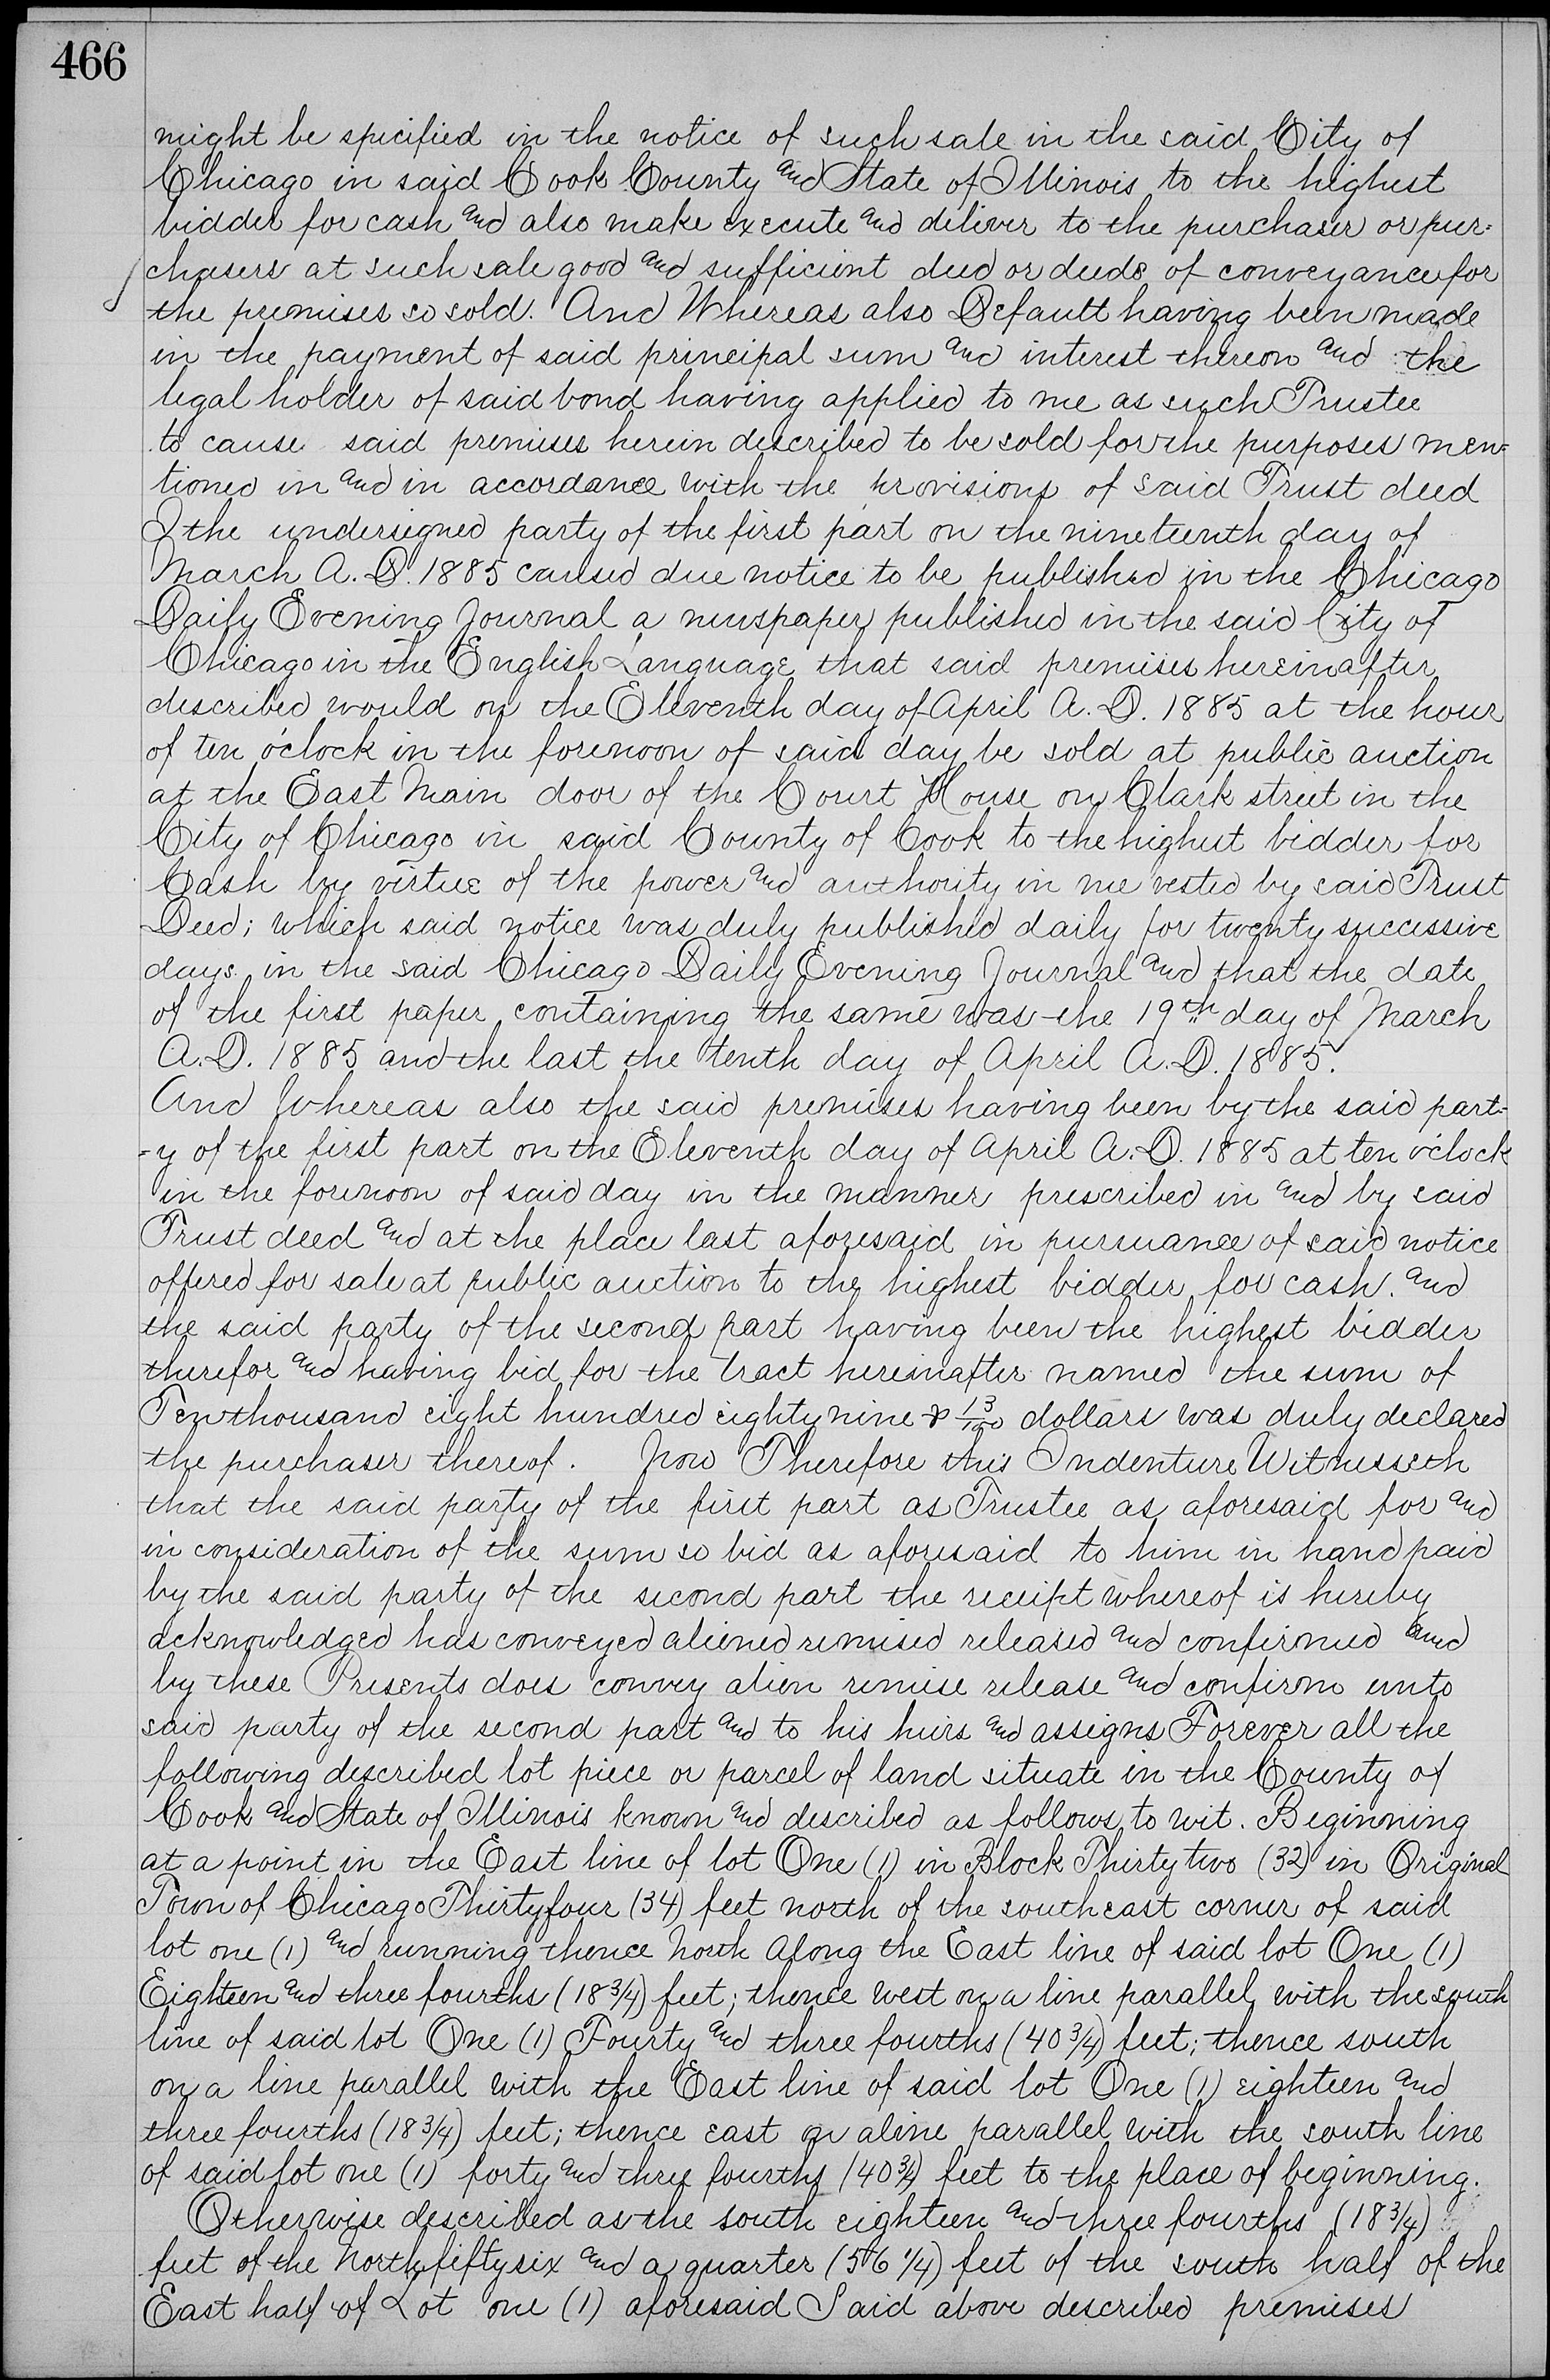 466
might be specified in the notice of such sale in the said City of
Chicago in said Cook County and State of Illinois to the highest
bidder for cash and also make execute and deliver to the purchaser or pur-
chasers at such sale good and sufficient deed or deeds of conveyance for
the premises so sold. And Whereas also Default having been made
in the payment of said principal sum and interest thereon and the
legal holder of said bond having applied to me as such Trustee
to cause said premises herein described to be sold for the purposes men-
tioned in and in accordance with the provisions of said Trust deed
I the undersigned party of the first part on the nineteenth day of
March A.D. 1885 caused due notice to be published in the Chicago
Daily Evening Journal a newspaper published in the said City of
Chicago in the English Language that said premises hereinafter
described would on the Eleventh day of April A.D. 1885 at the hour
of ten o'clock in the forenoon of said day be sold at public auction
at the East Main door of the Court House on Clark street in the
City of Chicago in said County of Cook to the highest bidder for
Cash by virtue of the power and authority in me vested by said Trust
Deed; which said notice was duly published daily for twenty successive
days in the said Chicago Daily Evening Journal and that the date
of the first paper containing the same was the 19th day of March
A.D. 1885 and the last the tenth day of April A.D. 1885.
And Whereas also the said premises having been by the said part-
-y of the first part on the Eleventh day of April A.D. 1885 at ten o'clock
in the forenoon of said day in the manner prescribed in and by said
Trust deed and at the place last aforesaid in pursuance of said notice
offered for sale at public auction to the highest bidder for cash. and
the said party of the second part having been the highest bidder
therefor and having bid for the tract hereinafter named the sum of
Ten thousand eight hundred eighty nine & 13/100 dollars was duly declared
the purchaser thereof. Now Therefore this Indenture Witnesseth
that the said party of the first part as Trustee as aforesaid for and
in consideration of the sum so bid as aforesaid to him in hand paid
by the said party of the second part the receipt whereof is hereby
acknowledged has conveyed aliened remised released and confirmed and
by these Presents does convey alien remise release and confirm unto
said party of the second part and to his heirs and assigns Forever all the
following described lot piece or parcel of land situate in the County of
Cook and State of Illinois known and described as follows to wit. Beginning
at a point in the East line of lot One (1) in Block Thirty two (32) in Original
Town of Chicago Thirty four (34) feet north of the southeast corner of said
lot one (1) and running thence North along the East line of said lot One (1)
Eighteen and three fourths (18 3/4) feet; thence west on a line parallel with the south
line of said lot One (1) Fourty and three fourths (40 3/4) feet; thence south
on a line parallel with the East line of said lot One (1) eighteen and
three fourths (18 3/4) feet; thence east on a line parallel with the south line
of said lot one (1) forty and three fourths (40 3/4) feet to the place of beginning.
Otherwise described as the south eighteen and three fourths (18 3/4)
feet of the North fifty six and a quarter (56 1/4) feet of the south half of the
East half of Lot one (1) aforesaid Said above described premises